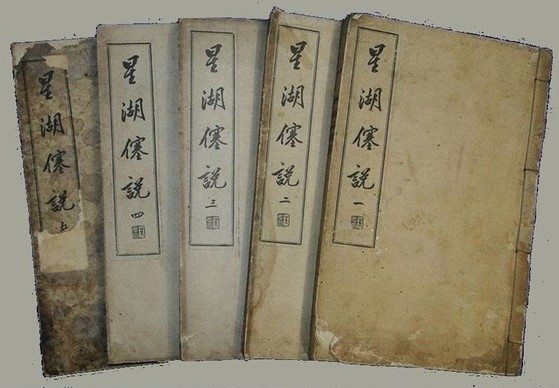 星湖僿說 一
星湖僿說 二
星湖僿說 三
星湖僿說 四
星湖僿說